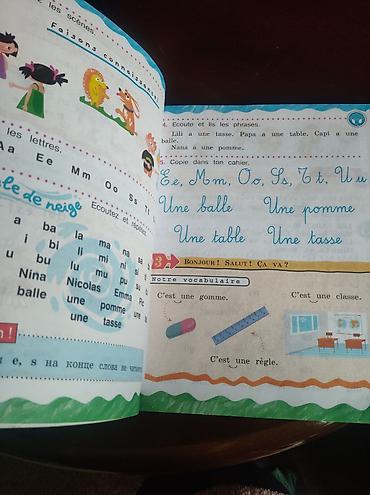 les scènes.
Faisons connaissance
les lettres.
Aa Ee Mm Oo Ss Tt
de neige
Ecoutez et répétez
a ba la ma na
i bi li mi ni si
u bu lu mu pu su
Nina Nicolas Emma
balle une pomme une
une tasse
e, s на конце слова не
4. Ecoute et lis les phrases.
Lili a une tasse. Papa a une table. Capi a une
balle.
Nana a une pomme.
5. Copie dans ton cahier.
Ee, Mm, Oo, Ss, Tt, Uu
Une balle Une pomme
Une table Une tasse
3 BONJOUR! SALUT! ÇA VA?
Notre vocabulaire
C'est une gomme. C'est une classe.
C'est une règle.